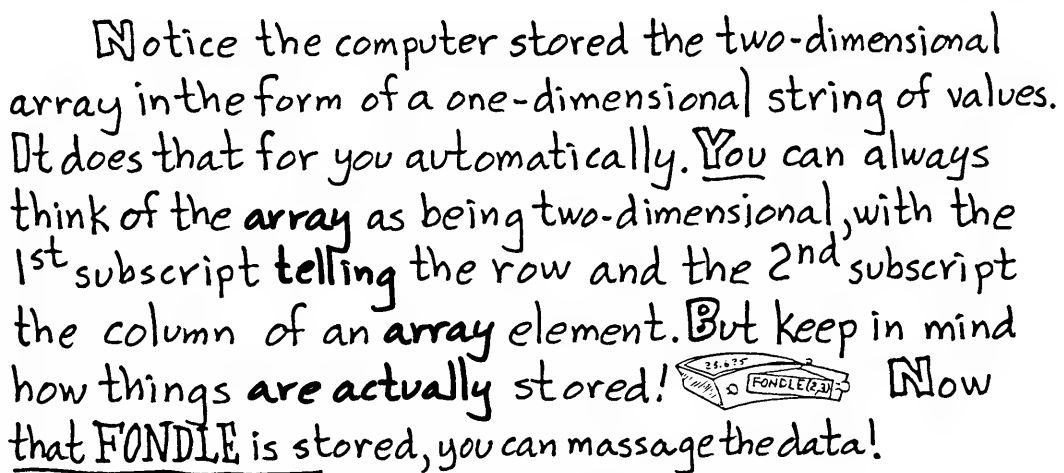 Notice the computer stored the two-dimensional
array in the form of a one-dimensional string of values.
It does that for you automatically. You can always
think of the array as being two-dimensional, with the
1st subscript telling the row and the 2nd subscript
the column of an array element. But keep in mind
how things are actually stored! 25.675 FONDLE(2,3) Now
that FONDLE is stored, you can massage the data!